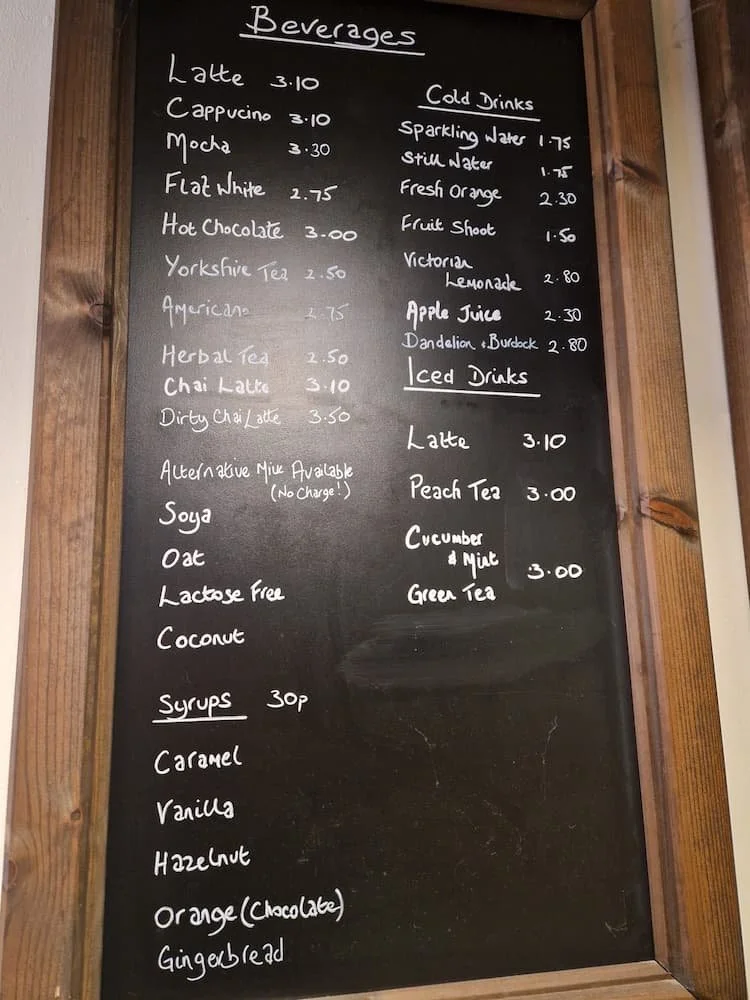 Beverages
Latte 3.10
Cappucino 3.10
Mocha 3.30
Flat White 2.75
Hot Chocolate 3.00
Yorkshire Tea 2.50
Americano 2.75
Herbal Tea 2.50
Chai Latte 3.10
Dirty Chai Latte 3.50
Alternative Milk Available
(No Charge!)
Soya
Oat
Lactose Free
Coconut
Syrups 30p
Caramel
Vanilla
Hazelnut
Orange (Chocolate)
Gingerbread
Cold Drinks
Sparkling Water 1.75
Still Water 1.75
Fresh Orange 2.30
Fruit Shoot 1.50
Victorian
Lemonade 2.80
Apple Juice 2.30
Dandelion + Burdock 2.80
Iced Drinks
Latte 3.10
Peach Tea 3.00
Cucumber
& Mint 3.00
Green Tea